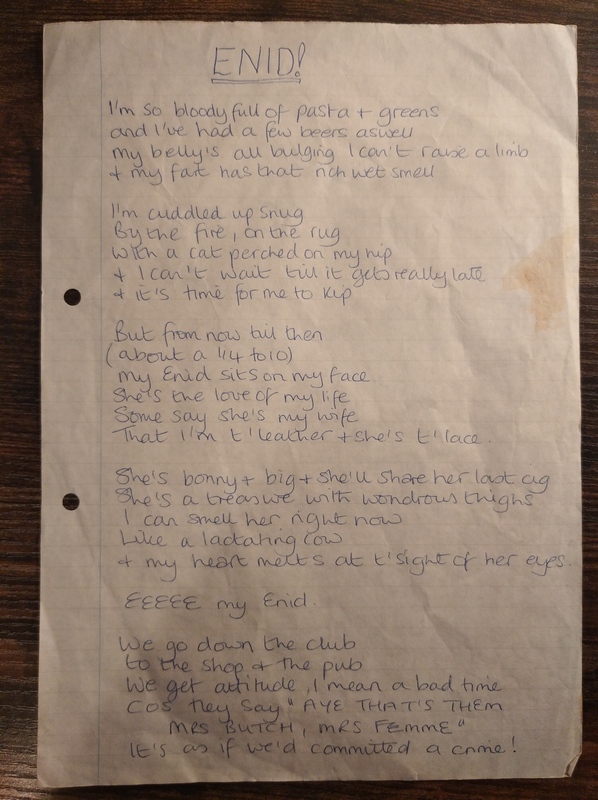 ENID!
I'm so bloody full of pasta + greens
and I've had a few beers aswell
my belly's all bulging I can't raise a limb
+ my fart has that rich wet smell
I'm cuddled up snug
By the fire, on the rug
with a cat perched on my hip
+ I can't wait till it gets really late
+ it's time for me to kip
But from now till then
(about a 1/4 to 10)
my Enid sits on my face
She's the love of my life
Some say she's my wife
That I'm t'leather + she's t'lace.
She's bonny + big + she'll share her last cig
She's a treasure with wondrous thighs
I can smell her right now
Like a lactating cow
+ my heart melts at t'sight of her eyes.
EEEEE my Enid.
We go down the club
to the shop + the pub
We get attitude, I mean a bad time
COS they say "AYE THAT'S THEM
MRS BUTCH, MRS FEMME"
It's as if we'd committed a crime!